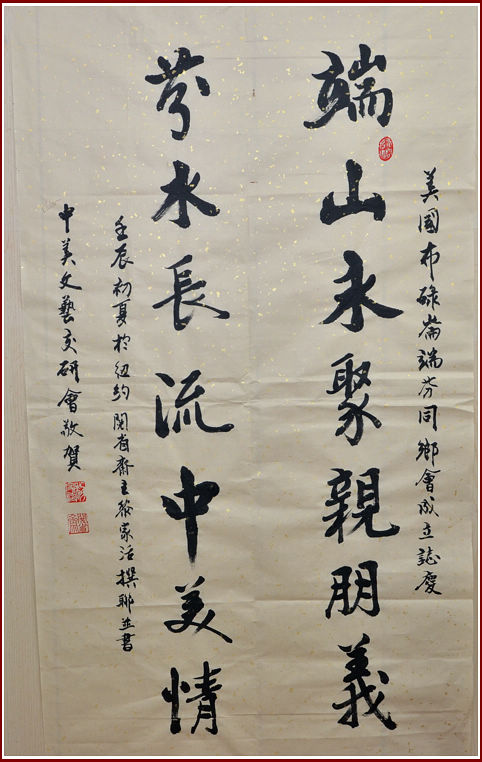 美國布碌崙端芬同鄉會成立誌慶
端山永聚親朋義
芬水長流中美情
壬辰初夏於紐約閱省齋主蔡家活撰聯並書
中美文藝交研會敬賀